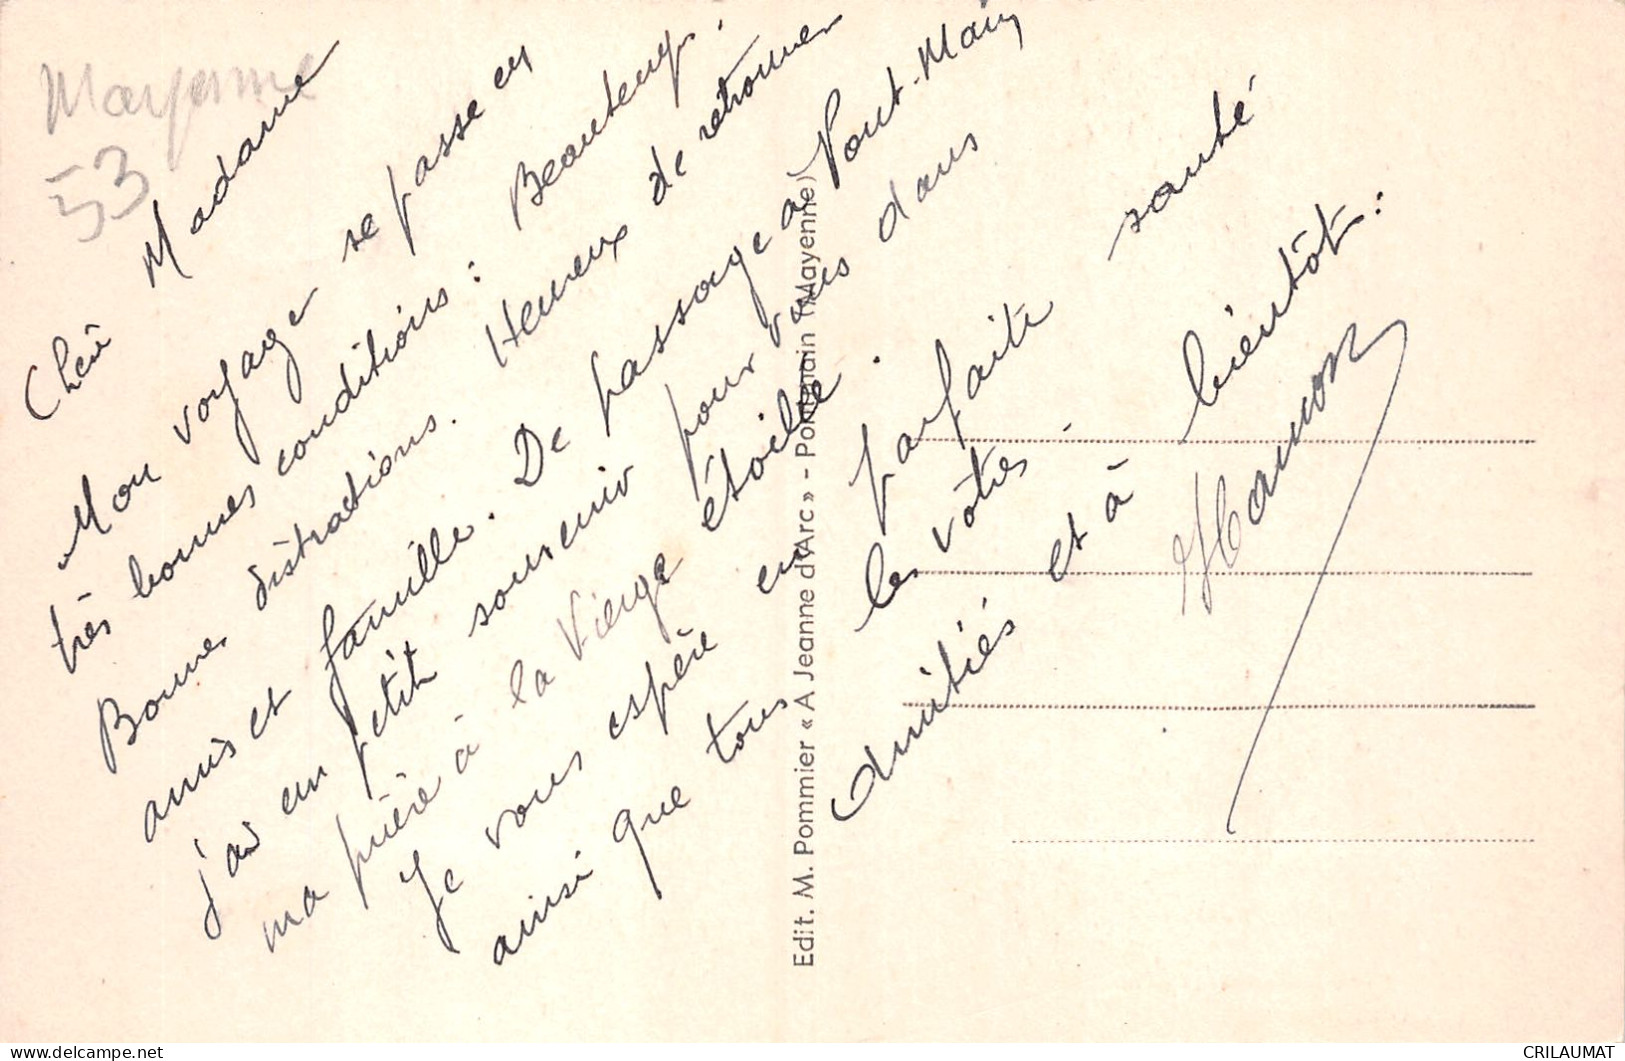 Mayenne
53
Chère Madame
Mon voyage se passe en
très bonnes conditions : Beau temps.
Bonnes distractions. Heureux de retrouver
amis et famille. De passage à Pont-Main
j'ai un petit souvenir pour vous dans
ma prière à la Vierge étoilée.
Je vous espère en parfaite santé
ainsi que tous les vôtres.
Amitiés et à bientôt.
Hamon
Edit. M. Pommier « A Jeanne d'Arc » - Pontmain (Mayenne)
CRILAUMAT